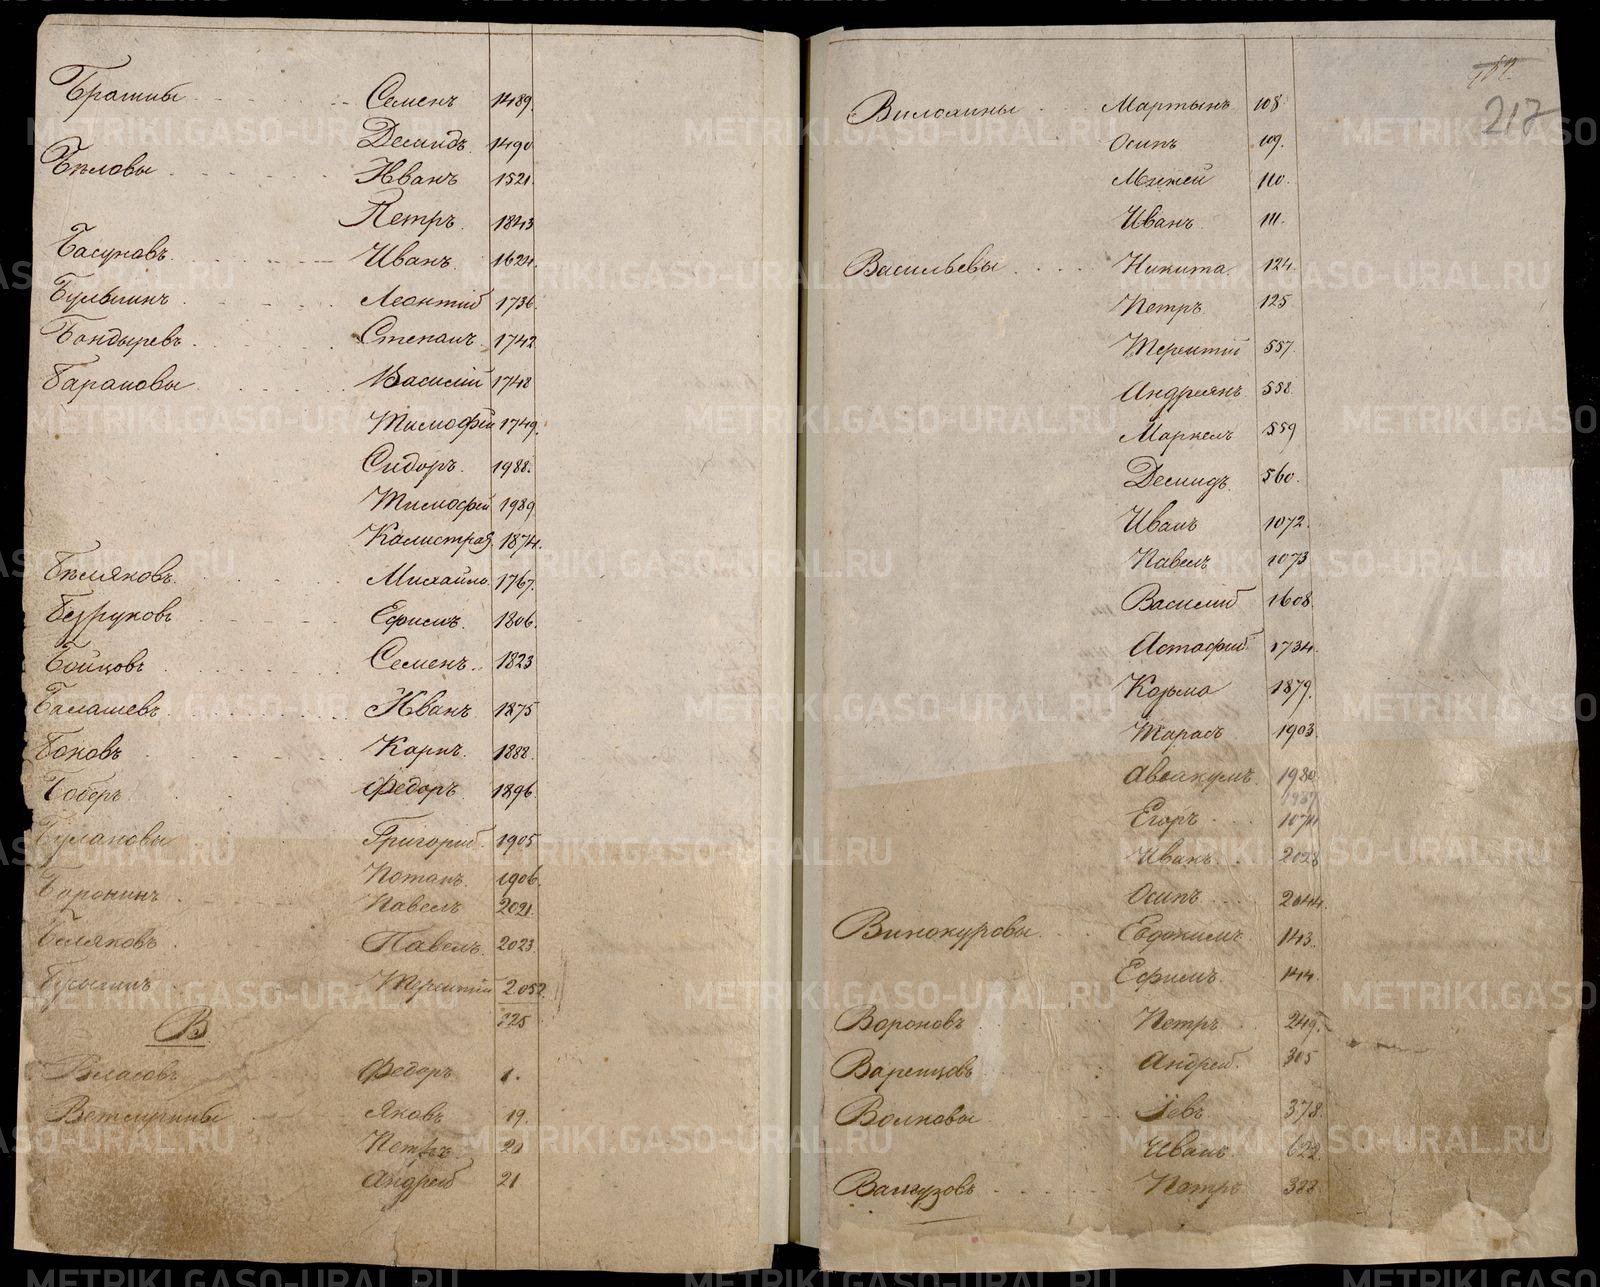 Семенъ 1489.
Демидъ 1490
Бѣловы Иванъ 1521.
Петръ. 1843
Басуновъ Иванъ 1624.
Леонтий 1736
Бондыревъ Степанъ. 1742
Барановы Василий 1748
Тимофей 1749.
Сидоръ. 1988.
Тимофей 1989
Калистрат. 1874.
Бѣляковъ Михайло 1767.
Безруковъ Ефимъ. 1806.
Бойцовъ Семенъ. 1823
Балашевъ Иванъ 1875
Боковъ Карпъ. 1888.
Боберъ Федоръ. 1896.
Булановы Григорий. 1905
Потапъ. 1906.
Баронинъ Павелъ 2021.
Беляковъ Павелъ. 2023.
Терентий 2052.
325
В
Власовъ Федоръ 1.
Яковъ 19.
Петръ 20
Андрей 21
217
Мартынъ 108
Осипъ 109.
110.
Иванъ 111.
Васильевы Никита. 124.
Петръ. 125
Терентий 557.
Андреянъ 558.
Маркелъ 559
Демидъ. 560.
Иванъ 1072.
Павелъ 1073
Василий 1608.
Астафий 1734.
Козьма 1879.
Тарасъ 1903.
Аввакумъ. 1980
1987
Егоръ
Иванъ. 2028
Осипъ 2044.
Винокуровы. Евдокимъ. 143.
Ефимъ. 144.
Вороновъ Петръ 249.
Варенцовъ Андрей. 305
Волковы Іевъ 378.
Иванъ. 622.
Петръ 388.
METRIKI.GASO-URAL.RU